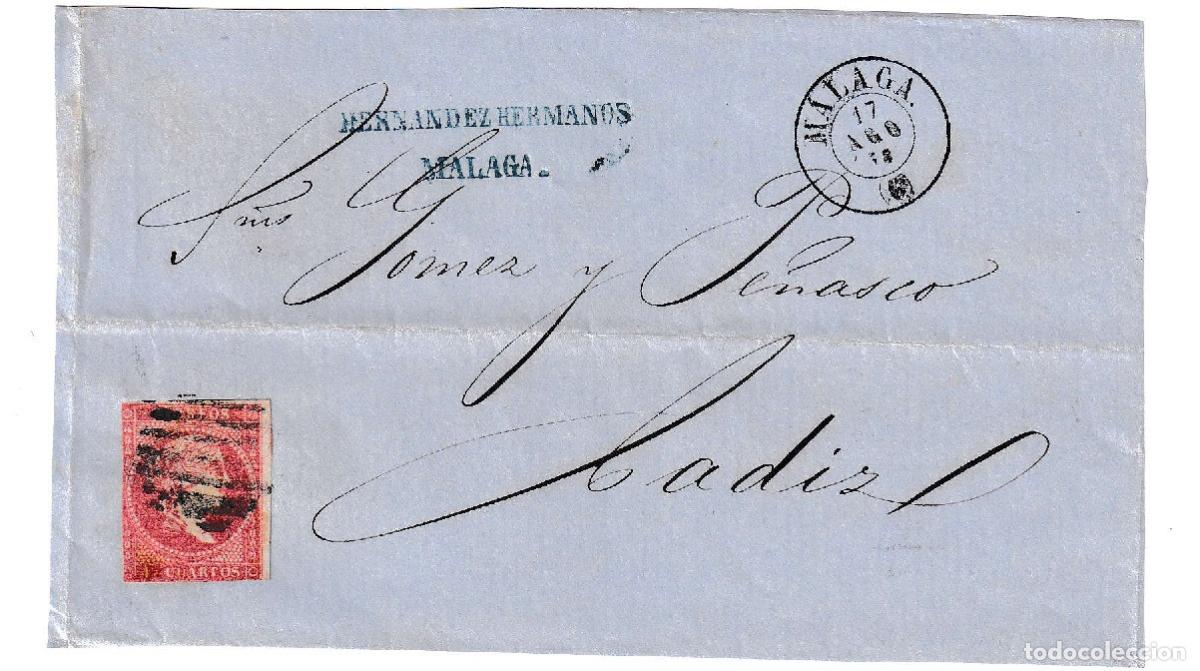 HERNANDEZ HERMANOS
MALAGA.
MÁLAGA.
17
AGO
Sres
Gomez y Peñasco
Cadiz
CUARTOS
todocoleccion